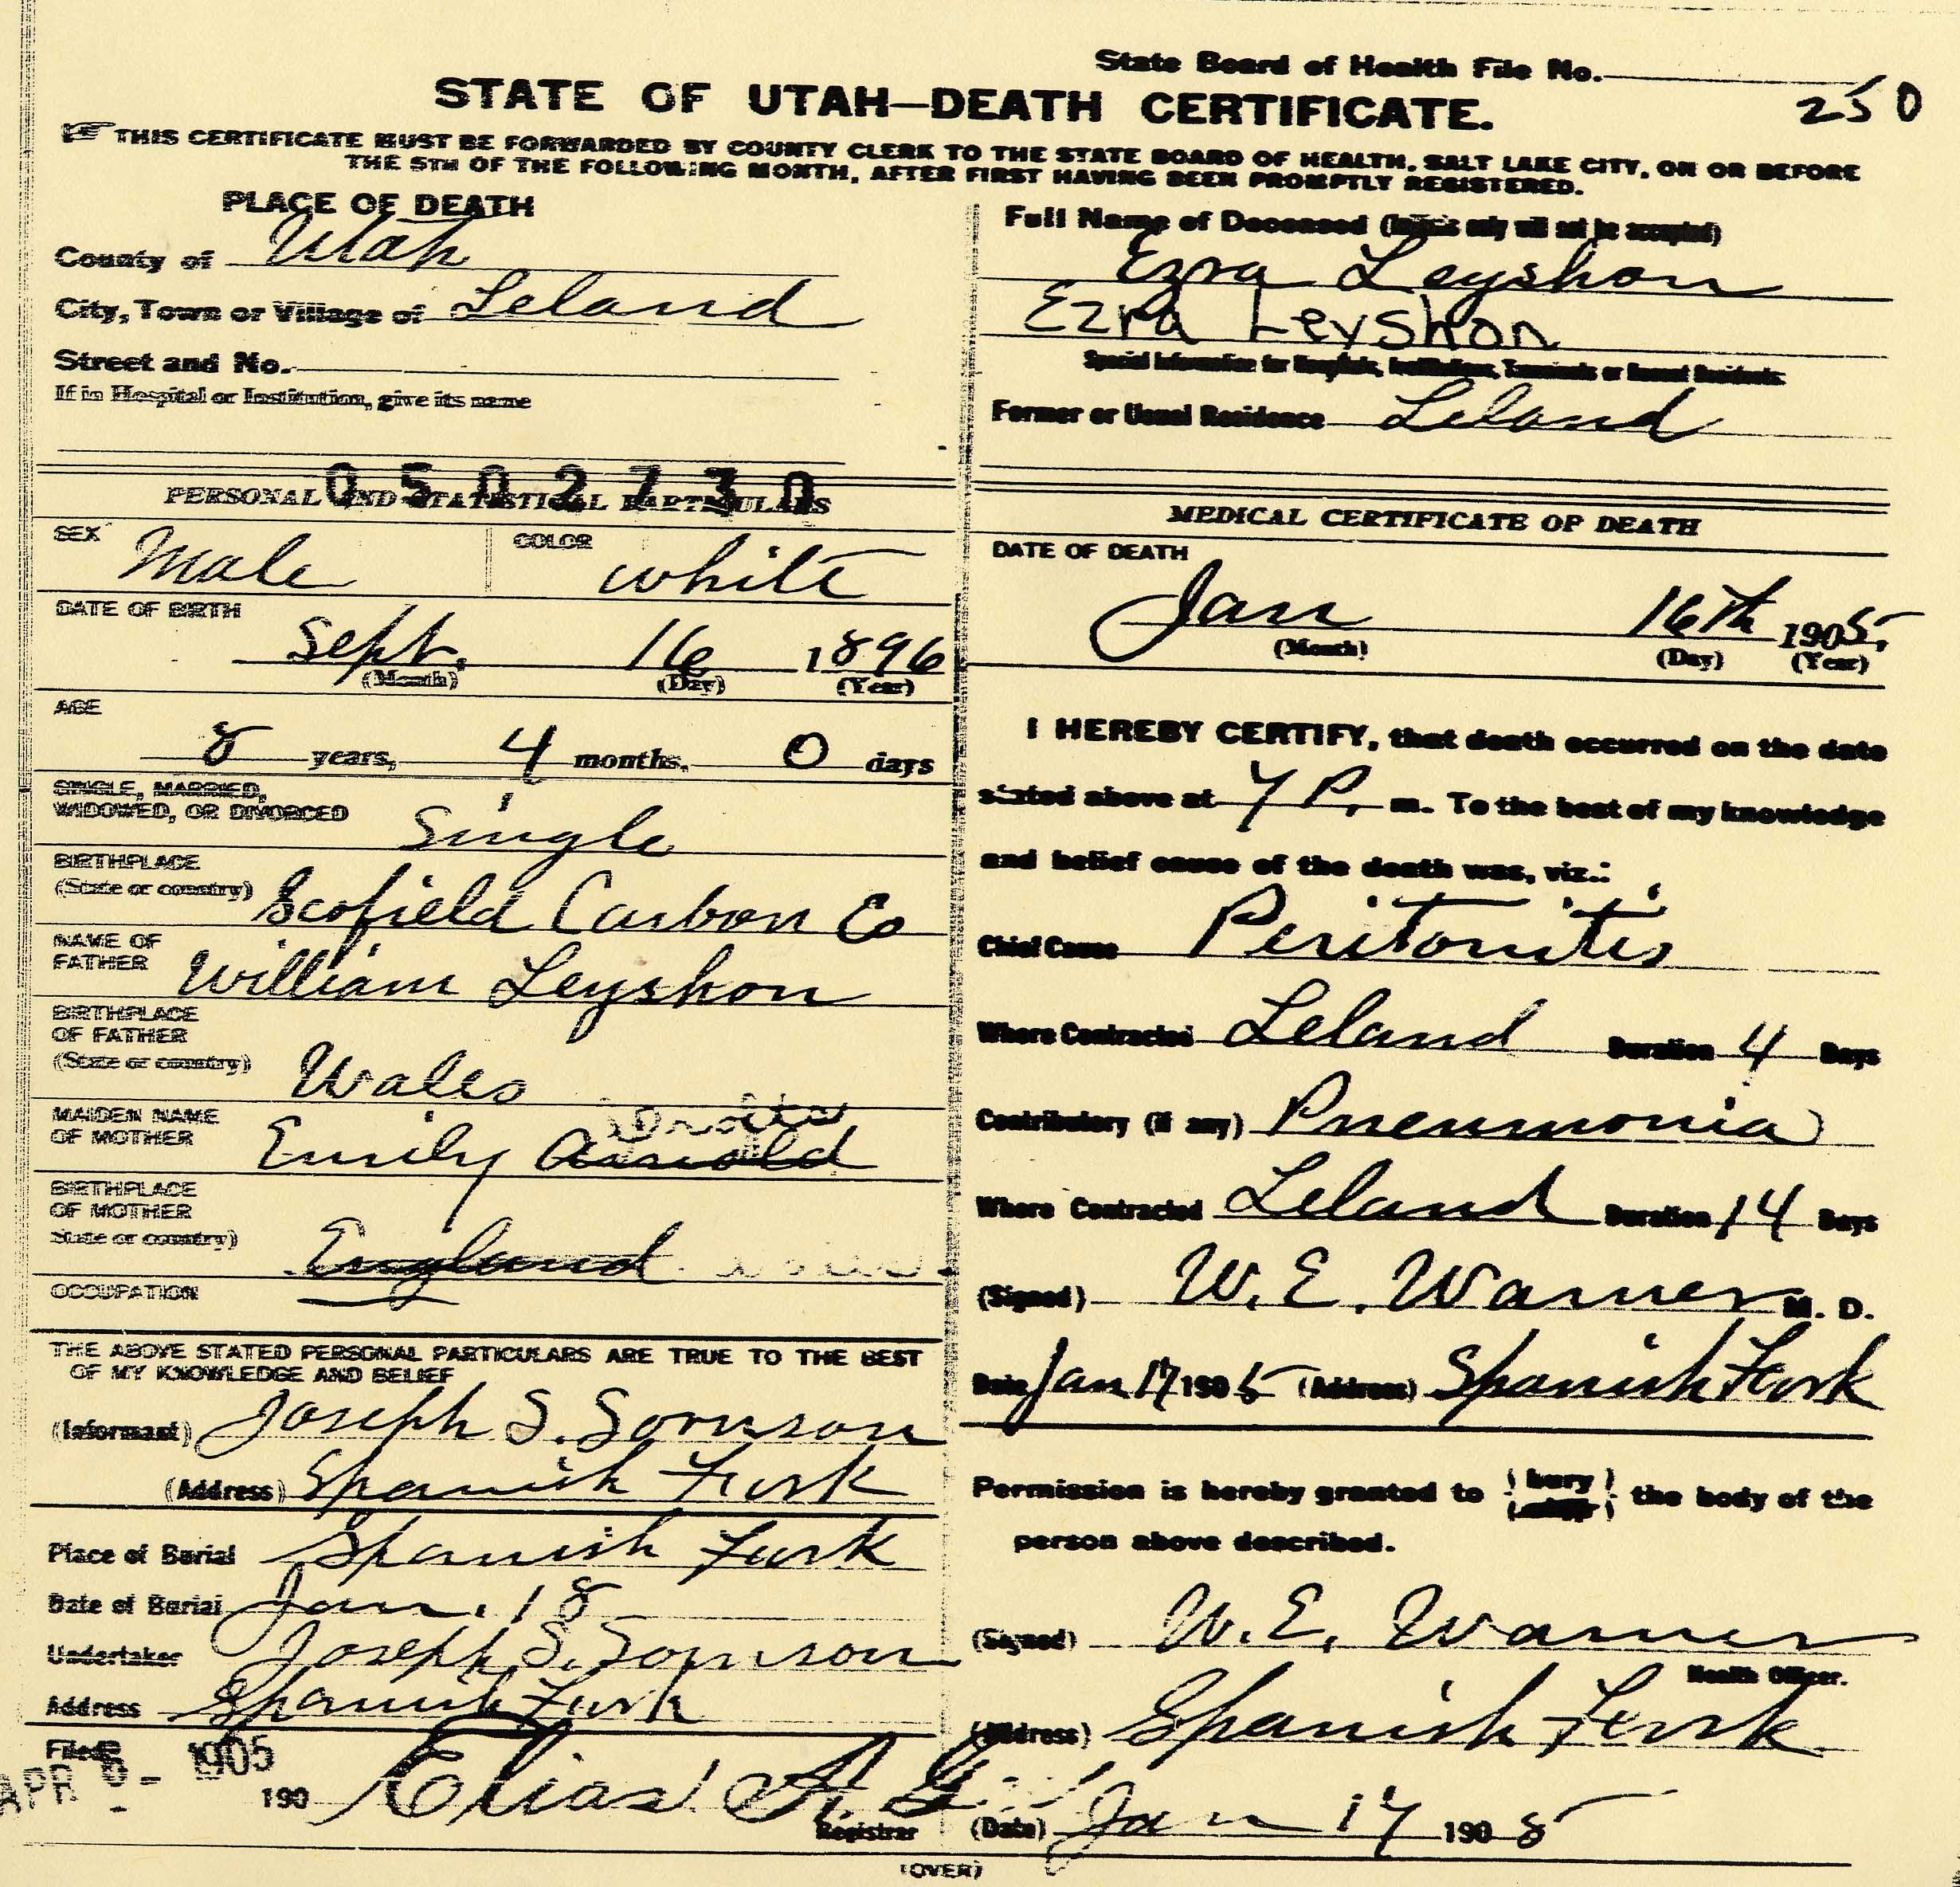 State Board of Health File No.
250
STATE OF UTAH—DEATH CERTIFICATE.
☞ THIS CERTIFICATE MUST BE FORWARDED BY COUNTY CLERK TO THE STATE BOARD OF HEALTH, SALT LAKE CITY, ON OR BEFORE
THE 5TH OF THE FOLLOWING MONTH, AFTER FIRST HAVING BEEN PROMPTLY REGISTERED.
PLACE OF DEATH
County of Utah
City, Town or Village of Leland
Street and No.
If in Hospital or Institution, give its name
Full Name of Deceased (Initials only will not be accepted)
Ezra Leyshon
Ezra Leyshon
Special Information for Hospitals, Institutions, Transients or Recent Residents.
Former or Usual Residence Leland
0502730
PERSONAL AND STATISTICAL PARTICULARS
SEX Male COLOR White
DATE OF BIRTH
Sept. 16 1896
(Month) (Day) (Year)
AGE
8 years, 4 months. 0 days
SINGLE, MARRIED,
WIDOWED, OR DIVORCED Single
BIRTHPLACE
(State or country) Scofield Carbon Co
NAME OF
FATHER William Leyshon
BIRTHPLACE
OF FATHER
(State or country) Wales
MAIDEN NAME
OF MOTHER Emily Arnold
BIRTHPLACE
OF MOTHER
State or country) England
OCCUPATION
THE ABOVE STATED PERSONAL PARTICULARS ARE TRUE TO THE BEST
OF MY KNOWLEDGE AND BELIEF
(Informant) Joseph S. Sornson
(Address) Spanish Fork
Place of Burial Spanish Fork
Date of Burial Jan. 18
Undertaker Joseph S. Sornson
Address Spanish Fork
Filed
APR 1905
190 Elias A.
Registrar
MEDICAL CERTIFICATE OF DEATH
DATE OF DEATH
Jan 16th 1905.
(Month) (Day) (Year)
I HEREBY CERTIFY, that death occurred on the date
stated above at 7 P. m. To the best of my knowledge
and belief cause of the death was, viz.:
Chief Cause Peritonitis
Where Contracted Leland Duration 4 Days
Contributory (if any) Pneumonia
Where Contracted Leland Duration 14 Days
(Signed) W. E. Warner M. D.
Date Jan 17 1905 (Address) Spanish Fork
Permission is hereby granted to bury the body of the
person above described.
(Signed) W. E. Warner
Health Officer.
(Address) Spanish Fork
(Date) Jan 17 1905
(OVER)